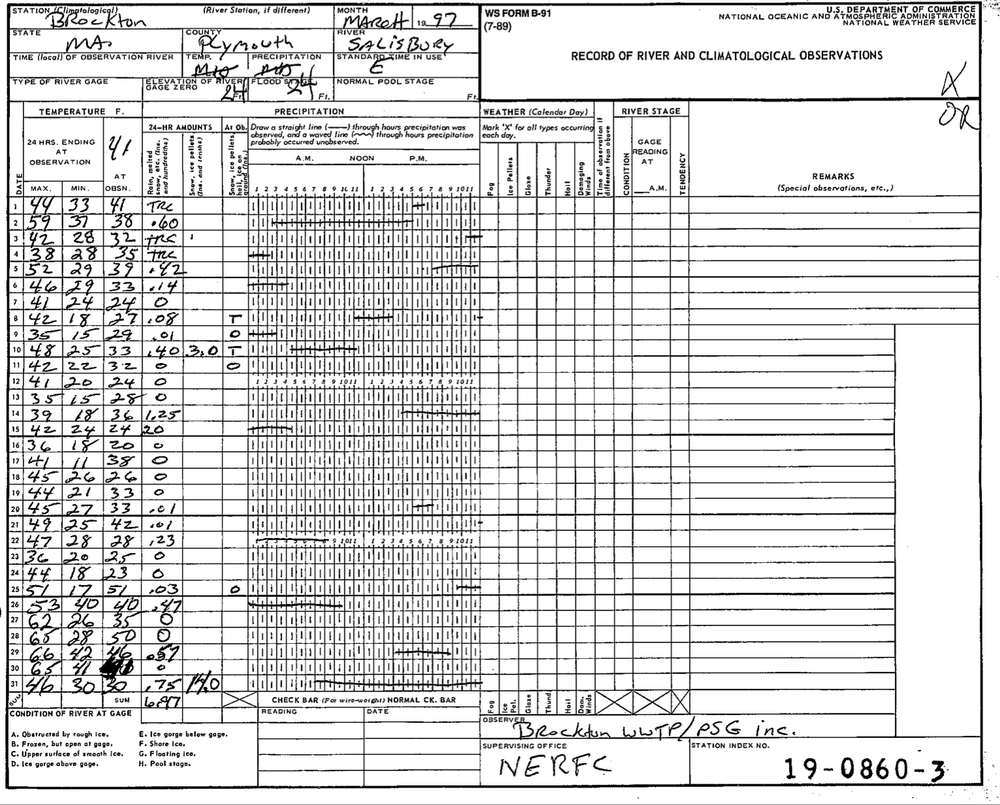 STATION (Climatological) (River Station, if different) MONTH
Brockton MARCH 1997
STATE COUNTY RIVER
MA. Plymouth SALISBURY
TIME (local) OF OBSERVATION RIVER TEMP. PRECIPITATION STANDARD TIME IN USE
E
TYPE OF RIVER GAGE ELEVATION OF RIVER GAGE ZERO Ft. FLOOD STAGE Ft. NORMAL POOL STAGE Ft.
24 24
WS FORM B-91
(7-89)
U.S. DEPARTMENT OF COMMERCE
NATIONAL OCEANIC AND ATMOSPHERIC ADMINISTRATION
NATIONAL WEATHER SERVICE
RECORD OF RIVER AND CLIMATOLOGICAL OBSERVATIONS
X
OR
TEMPERATURE F. PRECIPITATION WEATHER (Calendar Day) RIVER STAGE
24 HRS. ENDING AT OBSERVATION 41 AT OBSN.
24-HR AMOUNTS At Ob.
Rain, melted snow, etc. (Ins. and hundredths)
Snow, ice pellets (Ins. and tenths)
Draw a straight line (——) through hours precipitation was
observed, and a waved line (~~~) through hours precipitation
probably occurred unobserved.
Mark 'X' for all types occurring
each day.
A.M. NOON P.M.
1 2 3 4 5 6 7 8 9 10 11 1 2 3 4 5 6 7 8 9 10 11
Fog Ice Pellets Glaze Thunder Hail Damaging Winds
Time of observation if different from above
CONDITION GAGE READING AT A.M. TENDENCY
REMARKS
(Special observations, etc.,)
DATE MAX. MIN.
1 44 33 41 TRC
2 59 37 38 .60
3 42 28 32 TRC
4 38 28 35 TRC
5 52 29 39 .42
6 46 29 33 .14
7 41 24 24 0
8 42 18 27 .08 T
9 35 15 29 .01 0
10 48 25 33 .40 3.0 T
11 42 22 32 0 0
12 41 20 24 0 1 2 3 4 5 6 7 8 9 10 11 1 2 3 4 5 6 7 8 9 10 11
13 35 15 28 0
14 39 18 36 1.25
15 42 24 24 20
16 36 18 20 0
17 41 11 38 0
18 45 26 26 0
19 44 21 33 0
20 45 27 33 .01
21 49 25 42 .01
22 47 28 28 .23 9 10 11 1 2 3 4 5 6 7 8 9 10 11
23 36 20 25 0
24 44 18 23 0
25 51 17 51 .03 0
26 53 40 40 .47
27 62 26 35 0
28 65 28 50 0
29 66 42 46 .57
30 65 41 0
31 46 30 30 .75 14.0
SUM SUM 6.97
CHECK BAR (For wire-weight) NORMAL CK. BAR
READING DATE
Fog Ice Pel. Glaze Thund Hail Dam. Winds
CONDITION OF RIVER AT GAGE
A. Obstructed by rough ice. E. Ice gorge below gage.
B. Frozen, but open at gage. F. Shore ice.
C. Upper surface of smooth ice. G. Floating ice.
D. Ice gorge above gage. H. Pool stage.
OBSERVER
Brockton WWTP/PSG inc.
SUPERVISING OFFICE STATION INDEX NO.
NERFC 19-0860-3